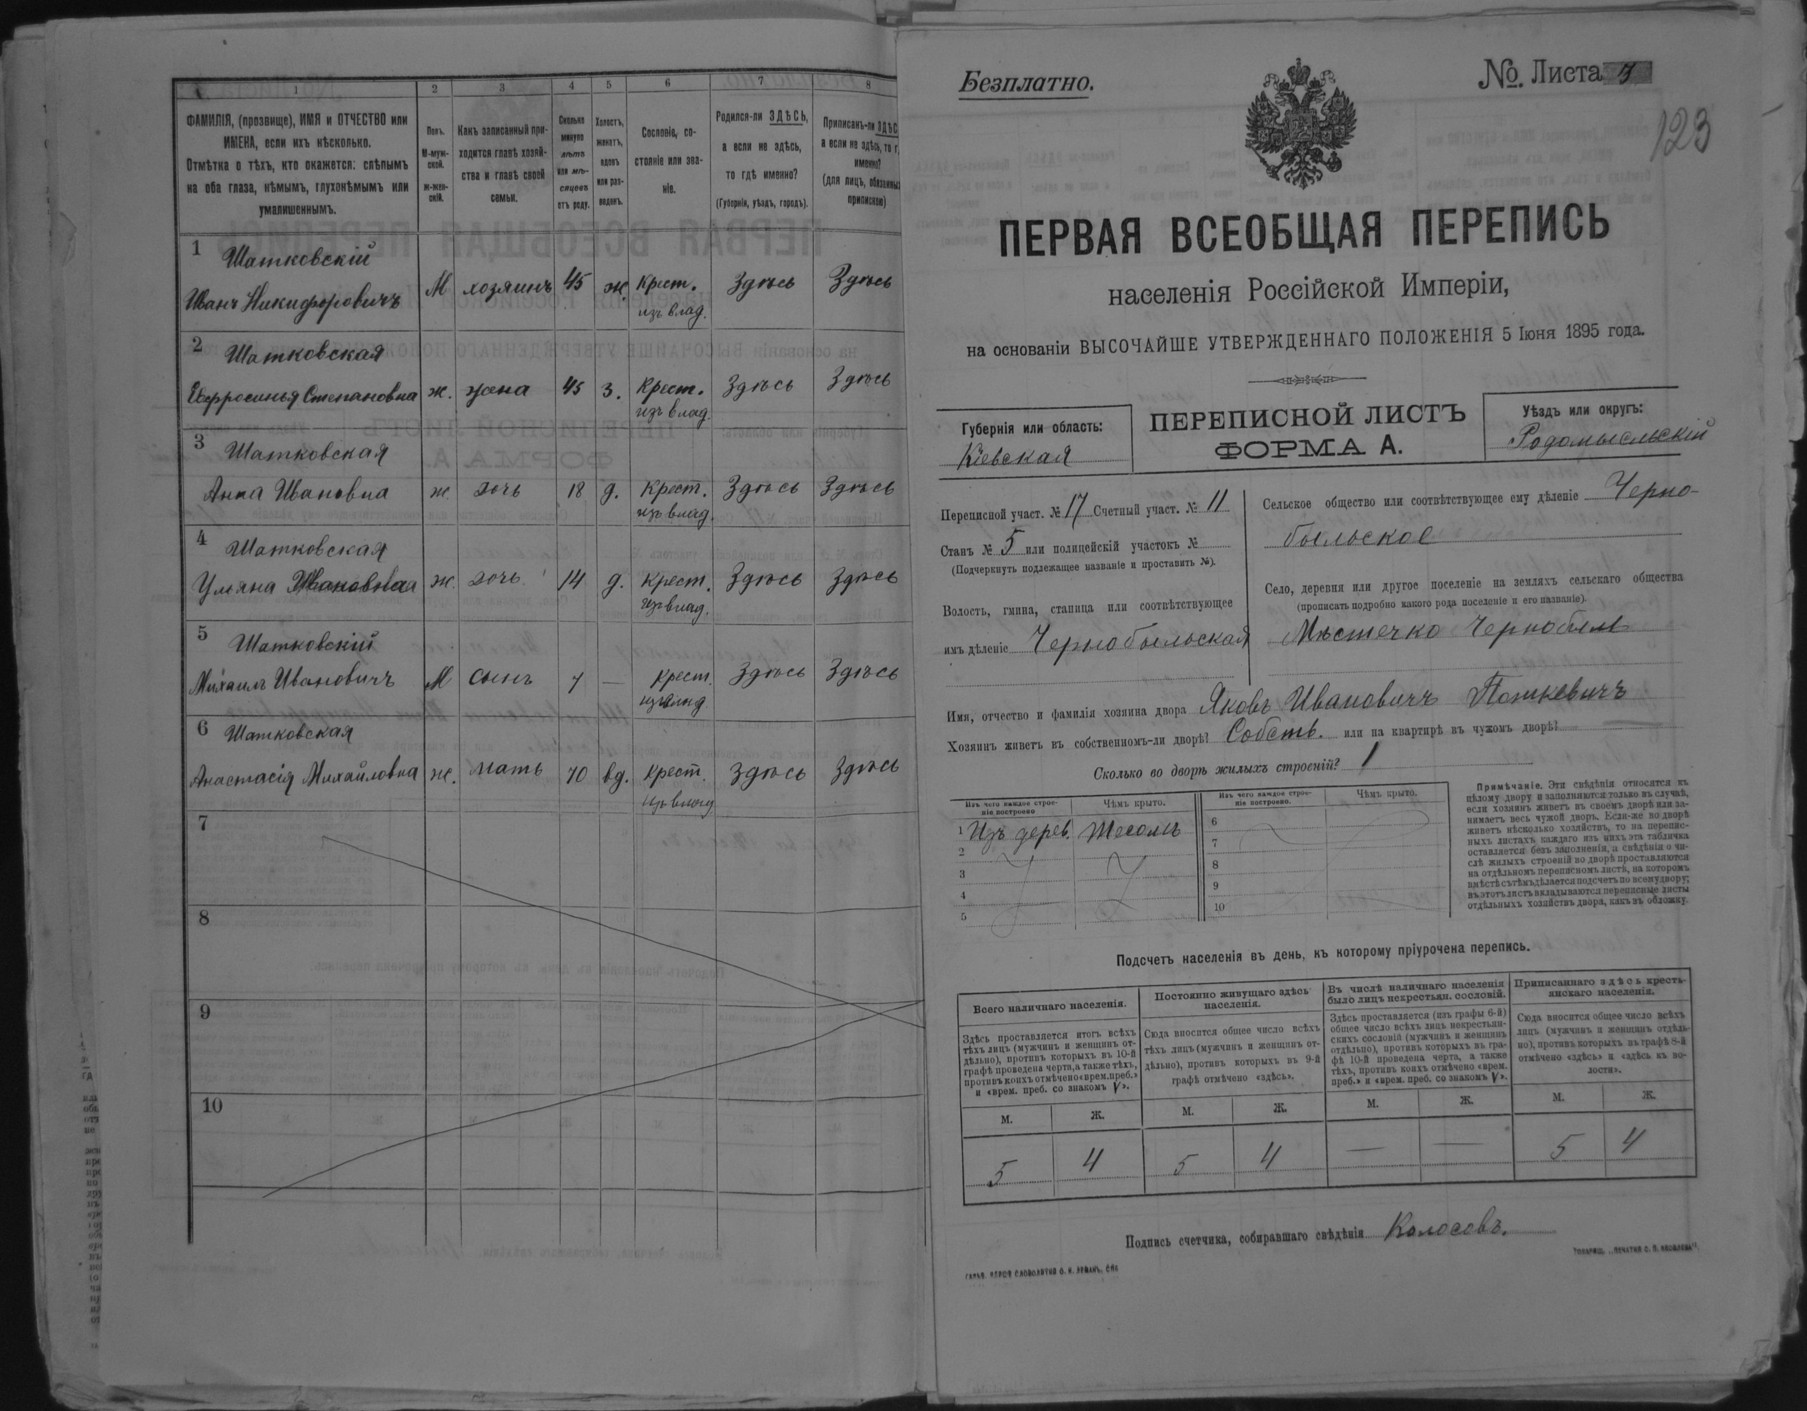 1 2 3 4 5 6 7 8
ФАМИЛІЯ, (прозвище), ИМЯ и ОТЧЕСТВО или
ИМЕНА, если ихъ нѣсколько.
Отмѣтка о тѣхъ, кто окажется: слѣпымъ
на оба глаза, нѣмымъ, глухонѣмымъ или
умалишеннымъ.
Полъ.
М-муж-
ской.
Ж-жен-
скій.
Какъ записанный при-
ходится главѣ хозяй-
ства и главѣ своей
семьи.
Сколько
минуло
лѣтъ
или мѣ-
сяцевъ
отъ роду.
Холостъ,
женатъ,
вдовъ
или раз-
веденъ.
Сословіе, со-
стояніе или зва-
ніе.
Родился-ли ЗДѢСЬ,
а если не здѣсь,
то гдѣ именно?
(Губернія, уѣздъ, городъ).
Приписанъ-ли ЗДѢС
а если не здѣсь, то г
именно?
(для лицъ, обязанных
припискою)
1 Шатковскій
Иванъ Никифоровичъ М хозяинъ 45 ж. Крест. Здѣсь Здѣсь
изъ влад.
2 Шатковская
Евфросинья Степановна ж. жена 45 з. Крест. Здѣсь Здѣсь
изъ влад.
3 Шатковская
Анна Ивановна ж дочь 18 д. Крест. Здѣсь Здѣсь
изъ влад.
4 Шатковская
Ульяна Ивановна ж. дочь 14 д. Крест. Здѣсь Здѣсь
изъ влад.
5 Шатковскій
Михаилъ Ивановичъ М сынъ 7 — Крест. Здѣсь Здѣсь
изъ влад
6 Шатковская
Анастасія Михайловна ж. мать 70 вд. Крест. Здѣсь Здѣсь
изъ влад
7
8
9
10
Безплатно.
№. Листа
123
ПЕРВАЯ ВСЕОБЩАЯ ПЕРЕПИСЬ
населенія Россійской Имперіи,
на основаніи ВЫСОЧАЙШЕ УТВЕРЖДЕННАГО ПОЛОЖЕНІЯ 5 Іюня 1895 года.
Губернія или область:
Кіевская
ПЕРЕПИСНОЙ ЛИСТЪ
ФОРМА А.
Уѣздъ или округъ:
Радомысльскій
Переписной участ. № 17 Счетный участ. № 11
Станъ № 5 или полицейскій участокъ №
(Подчеркнуть подлежащее названіе и проставить №).
Волость, гмина, станица или соотвѣтствующее
имъ дѣленіе Чернобыльская
Сельское общество или соотвѣтствующее ему дѣленіе Черно-
быльское
Село, деревня или другое поселеніе на земляхъ сельскаго общества
(прописать подробно какого рода поселеніе и его названіе).
Мѣстечко Чернобыль
Имя, отчество и фамилія хозяина двора Яковъ Ивановичъ
Хозяинъ живетъ въ собственномъ-ли дворѣ? Собств. или на квартирѣ въ чужомъ дворѣ?
Сколько во дворѣ жилыхъ строеній? 1
Изъ чего каждое строе-
ніе построено
Чѣмъ крыто.
Изъ чего каждое строе-
ніе построено.
Чѣмъ крыто.
1 Изъ дерев. Тесомъ
2
3
4
5
6
7
8
9
10
Примѣчаніе. Эти свѣдѣнія относятся къ
цѣлому двору и заполняются только въ случаѣ,
если хозяинъ живетъ въ своемъ дворѣ или за-
нимаетъ весь чужой дворъ. Если-же во дворѣ
живетъ нѣсколько хозяйствъ, то на перепис-
ныхъ листахъ каждаго изъ нихъ эта табличка
оставляется безъ заполненія, а свѣдѣнія о чи-
слѣ жилыхъ строеній во дворѣ проставляются
на отдѣльномъ переписномъ листѣ, на которомъ
вмѣстѣ съ тѣмъ дѣлается подсчетъ по всему двору;
въ этотъ листъ вкладываются переписные листы
отдѣльныхъ хозяйствъ двора, какъ въ обложку.
Подсчетъ населенія въ день, къ которому пріурочена перепись.
Всего наличнаго населенія.
Постоянно живущаго здѣсь
населенія.
Въ числѣ наличнаго населенія
было лицъ некрестьян. сословій.
Приписаннаго здѣсь кресть-
янскаго населенія.
Здѣсь проставляется итогъ всѣхъ
тѣхъ лицъ (мужчинъ и женщинъ от-
дѣльно), противъ которыхъ въ 10-й
графѣ проведена черта, а также тѣхъ,
противъ коихъ отмѣчено «врем. преб.»
и «врем. преб. со знакомъ V».
Сюда вносится общее число всѣхъ
тѣхъ лицъ (мужчинъ и женщинъ от-
дѣльно), противъ которыхъ въ 9-й
графѣ отмѣчено «здѣсь».
Здѣсь проставляется (изъ графы 6-й)
общее число всѣхъ лицъ некрестьян-
скихъ сословій (мужчинъ и женщинъ
отдѣльно), противъ которыхъ въ гра-
фѣ 10-й проведена черта, а также
тѣхъ, противъ коихъ отмѣчено «врем.
преб.» и «врем. преб. со знакомъ V».
Сюда вносится общее число всѣхъ
лицъ (мужчинъ и женщинъ отдѣль-
но), противъ которыхъ въ графѣ 8-й
отмѣчено «здѣсь» и «здѣсь къ во-
лости».
М. Ж. М. Ж. М. Ж. М. Ж.
5 4 5 4 — — 5 4
Подпись счетчика, собиравшаго свѣдѣнія Колосовъ.